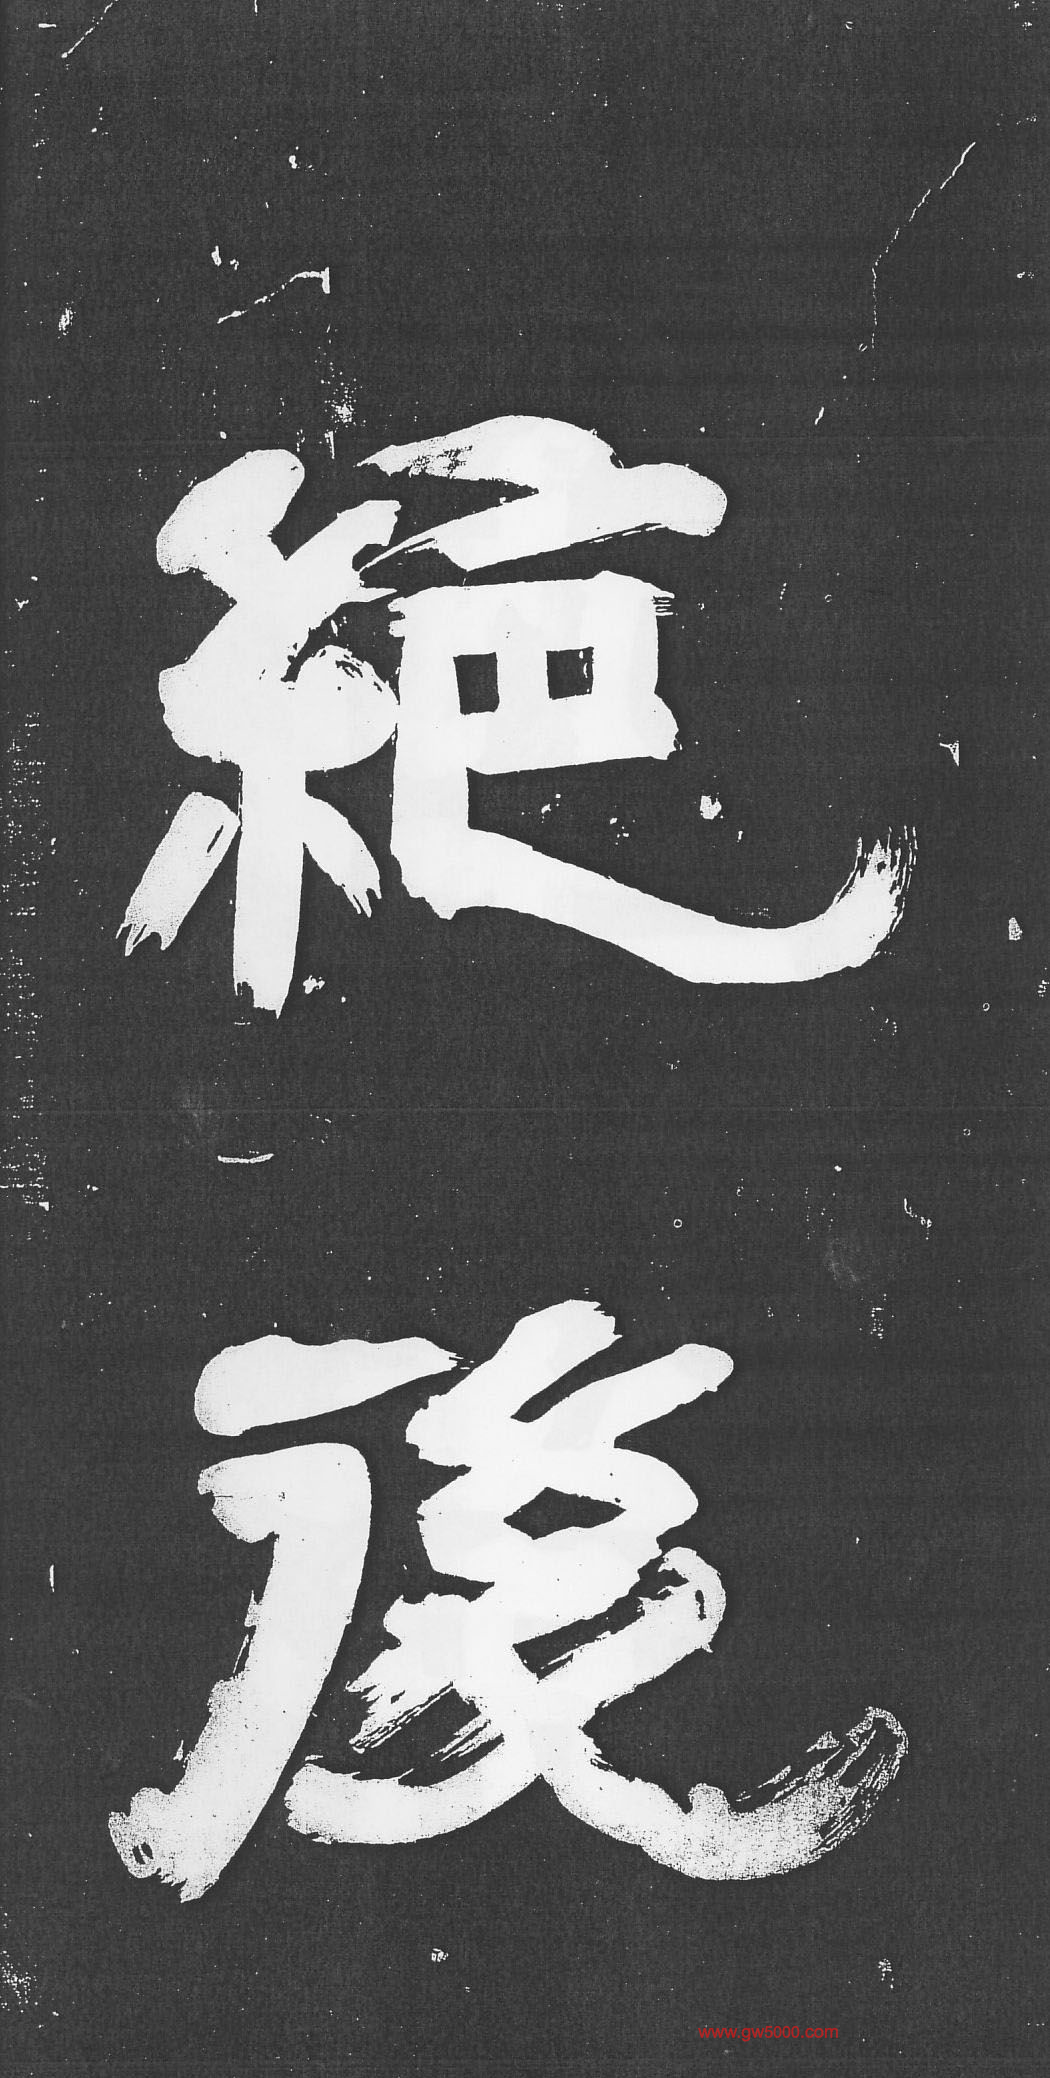 絕
後
www.gw5000.com